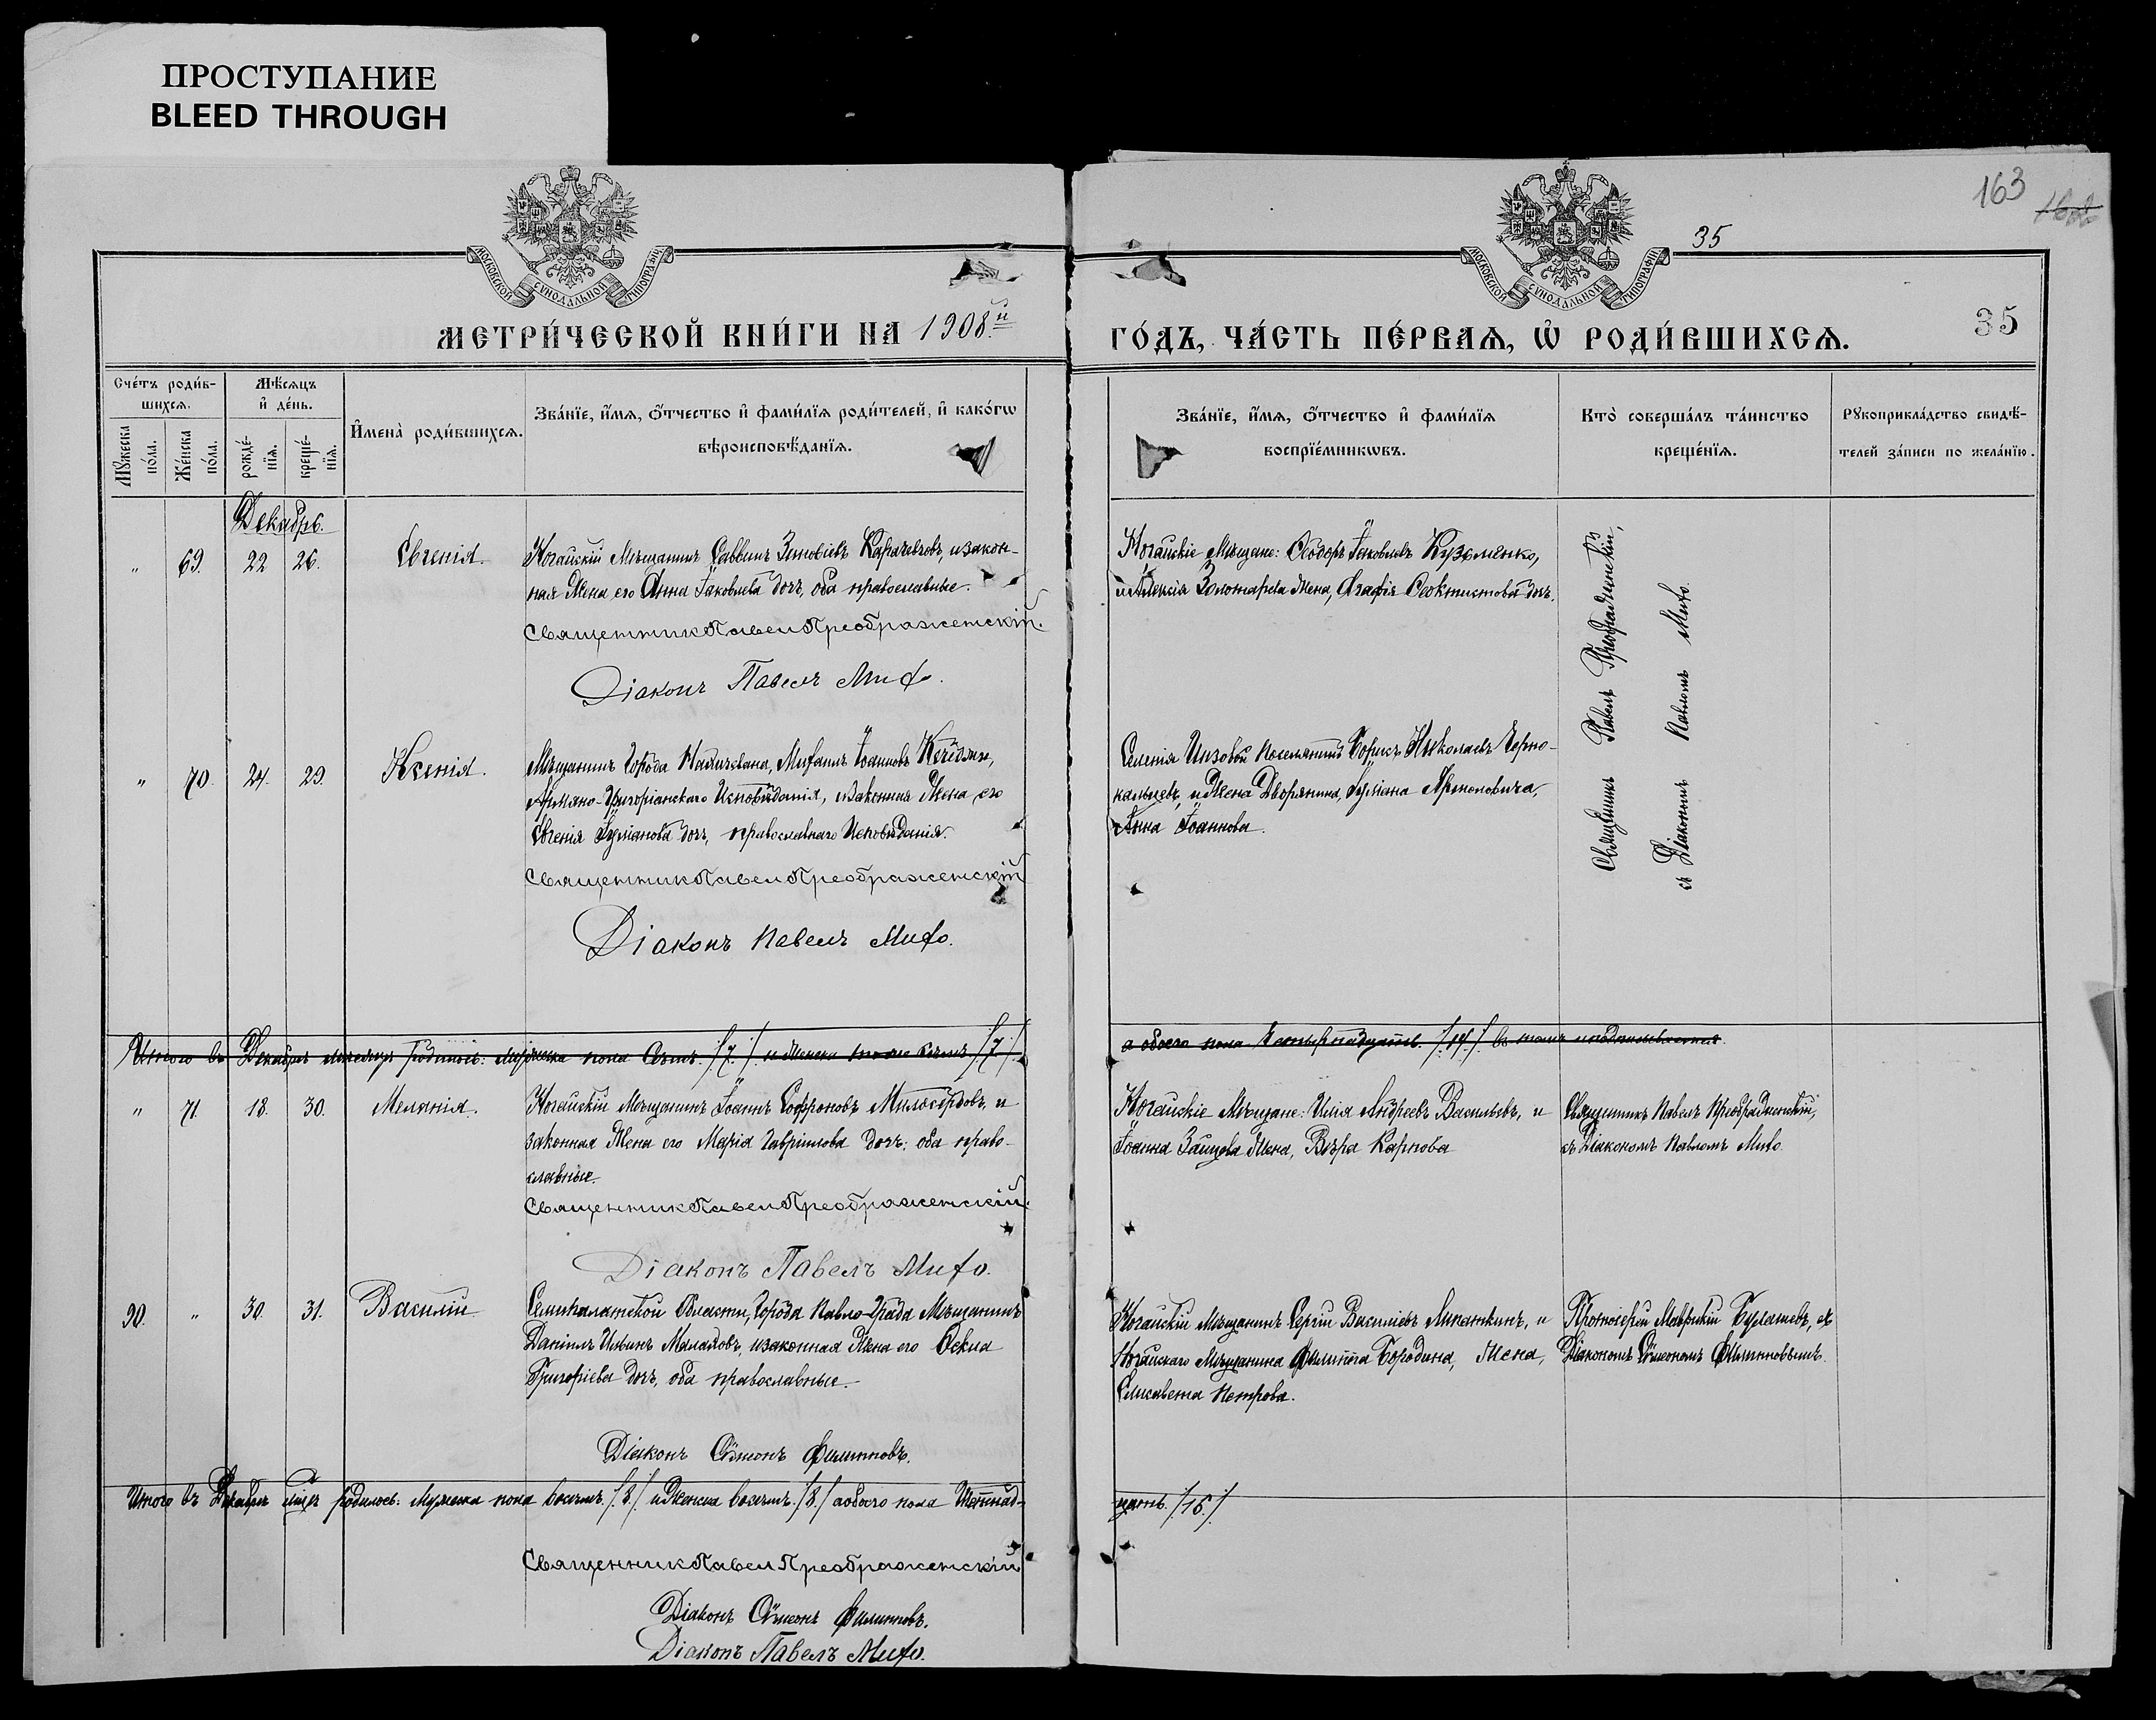 ПРОСТУПАНИЕ
BLEED THROUGH
163
35
МОСКОВСКОЙ СѴНОДАЛЬНОЙ ТИПОГРАФІИ
МОСКОВСКОЙ СѴНОДАЛЬНОЙ ТИПОГРАФІИ
МЕТРИ́ЧЕСКОЙ КНИ́ГИ НА 1908.й
ГО́ДЪ, ЧА́СТЬ ПЕ́РВАѦ, Ѡ҆ РОДИ́ВШИХСѦ.
35
Сче́тъ роди́в-
шихсѧ.
Мѣ́сѧцъ
и҆ де́нь.
Мꙋ́жеска
по́ла.
Же́нска
по́ла.
рожде́-
нїѧ.
креще́-
нїѧ.
И҆мена̀ роди́вшихсѧ.
Зва́нїе, и҆́мѧ, ѻ҆́тчество и҆ фами́лїѧ роди́телей, и҆ како́гѡ
вѣроисповѣ́данїѧ.
Зва́нїе, и҆́мѧ, ѻ҆́тчество и҆ фами́лїѧ
воспрїе́мникѡвъ.
Кто̀ соверша́лъ та́инство
креще́нїѧ.
Рꙋкоприкла́дство свидѣ́-
телей за́писи по жела́нїю.
Декабрь.
" 69. 22 26. Евгенія.
Ногайскій Мѣщанинъ Саввинъ Зиновіевъ и закон-
ная Жена его Анна Іаковлева дочь, оба православные.
Священник Павел Преображенскій.
Діаконъ Павелъ Мифо.
Ногайскіе Мѣщане: Ѳеодоръ Іаковлевъ Кузьменко,
и Алексія Золотарева Жена, Агафія Ѳеоктистова дочь.
Священникъ Павелъ Преображенскій,
съ Діакономъ Павломъ Мифо.
" 70. 24. 29. Ксенія.
Мѣщанинъ Города Нахичевана, Іоанновъ
Армяно-Григоріанскаго Исповѣданія, и законная Жена его
Евгенія дочь, православнаго Исповѣданія.
Священник Павел Преображенскій
Діаконъ Павелъ Мифо.
Селенія поселянинъ Борисъ Николаевъ Черно-
кальцевъ, и Жена Дворянина,
Анна Іоаннова.
Итого въ Декабрѣ мѣсяцѣ родилось: мужеска пола Семь /7./ и женска тоже семь /7./
а обоего пола Четырнадцать. /14./
" 71. 18. 30. Меланія.
Ногайскій Мѣщанинъ Іоаннъ Софроновъ Милосердовъ, и
законная Жена его Марія Гавріилова дочь; оба право-
славные.
Священник Павел Преображенскій.
Діаконъ Павелъ Мифо.
Ногайскіе Мѣщане: Илія Андреевъ Васильевъ, и
Іоанна Зайцева Жена, Вѣра Карпова
Священникъ Павелъ Преображенскій,
съ Діакономъ Павломъ Мифо.
90. " 30. 31. Василій
Семипалатской Области, Города Павло-града Мѣщанинъ
Даніилъ Ильинъ Малаховъ, и законная Жена его Ѳекла
Григоріева дочь, оба православные.
Діаконъ Сѷмеонъ Филипповъ.
Ногайскій Мѣщанинъ Сергій Василіевъ и
Ногайскаго Мѣщанина Филиппа Бородина, Жена,
Елисавета Петрова.
Протоіерей Маврикій съ
Діакономъ Сѷмеономъ Филипповымъ.
Итого въ Декабрѣ мѣсяцѣ родилось: мужеска пола восемь /8./ и Женска восемь /8./ а обоего пола Шестнад-
цать /16./
Священник Павел Преображенскій
Діаконъ Сѷмеонъ Филипповъ.
Діаконъ Павелъ Мифо.